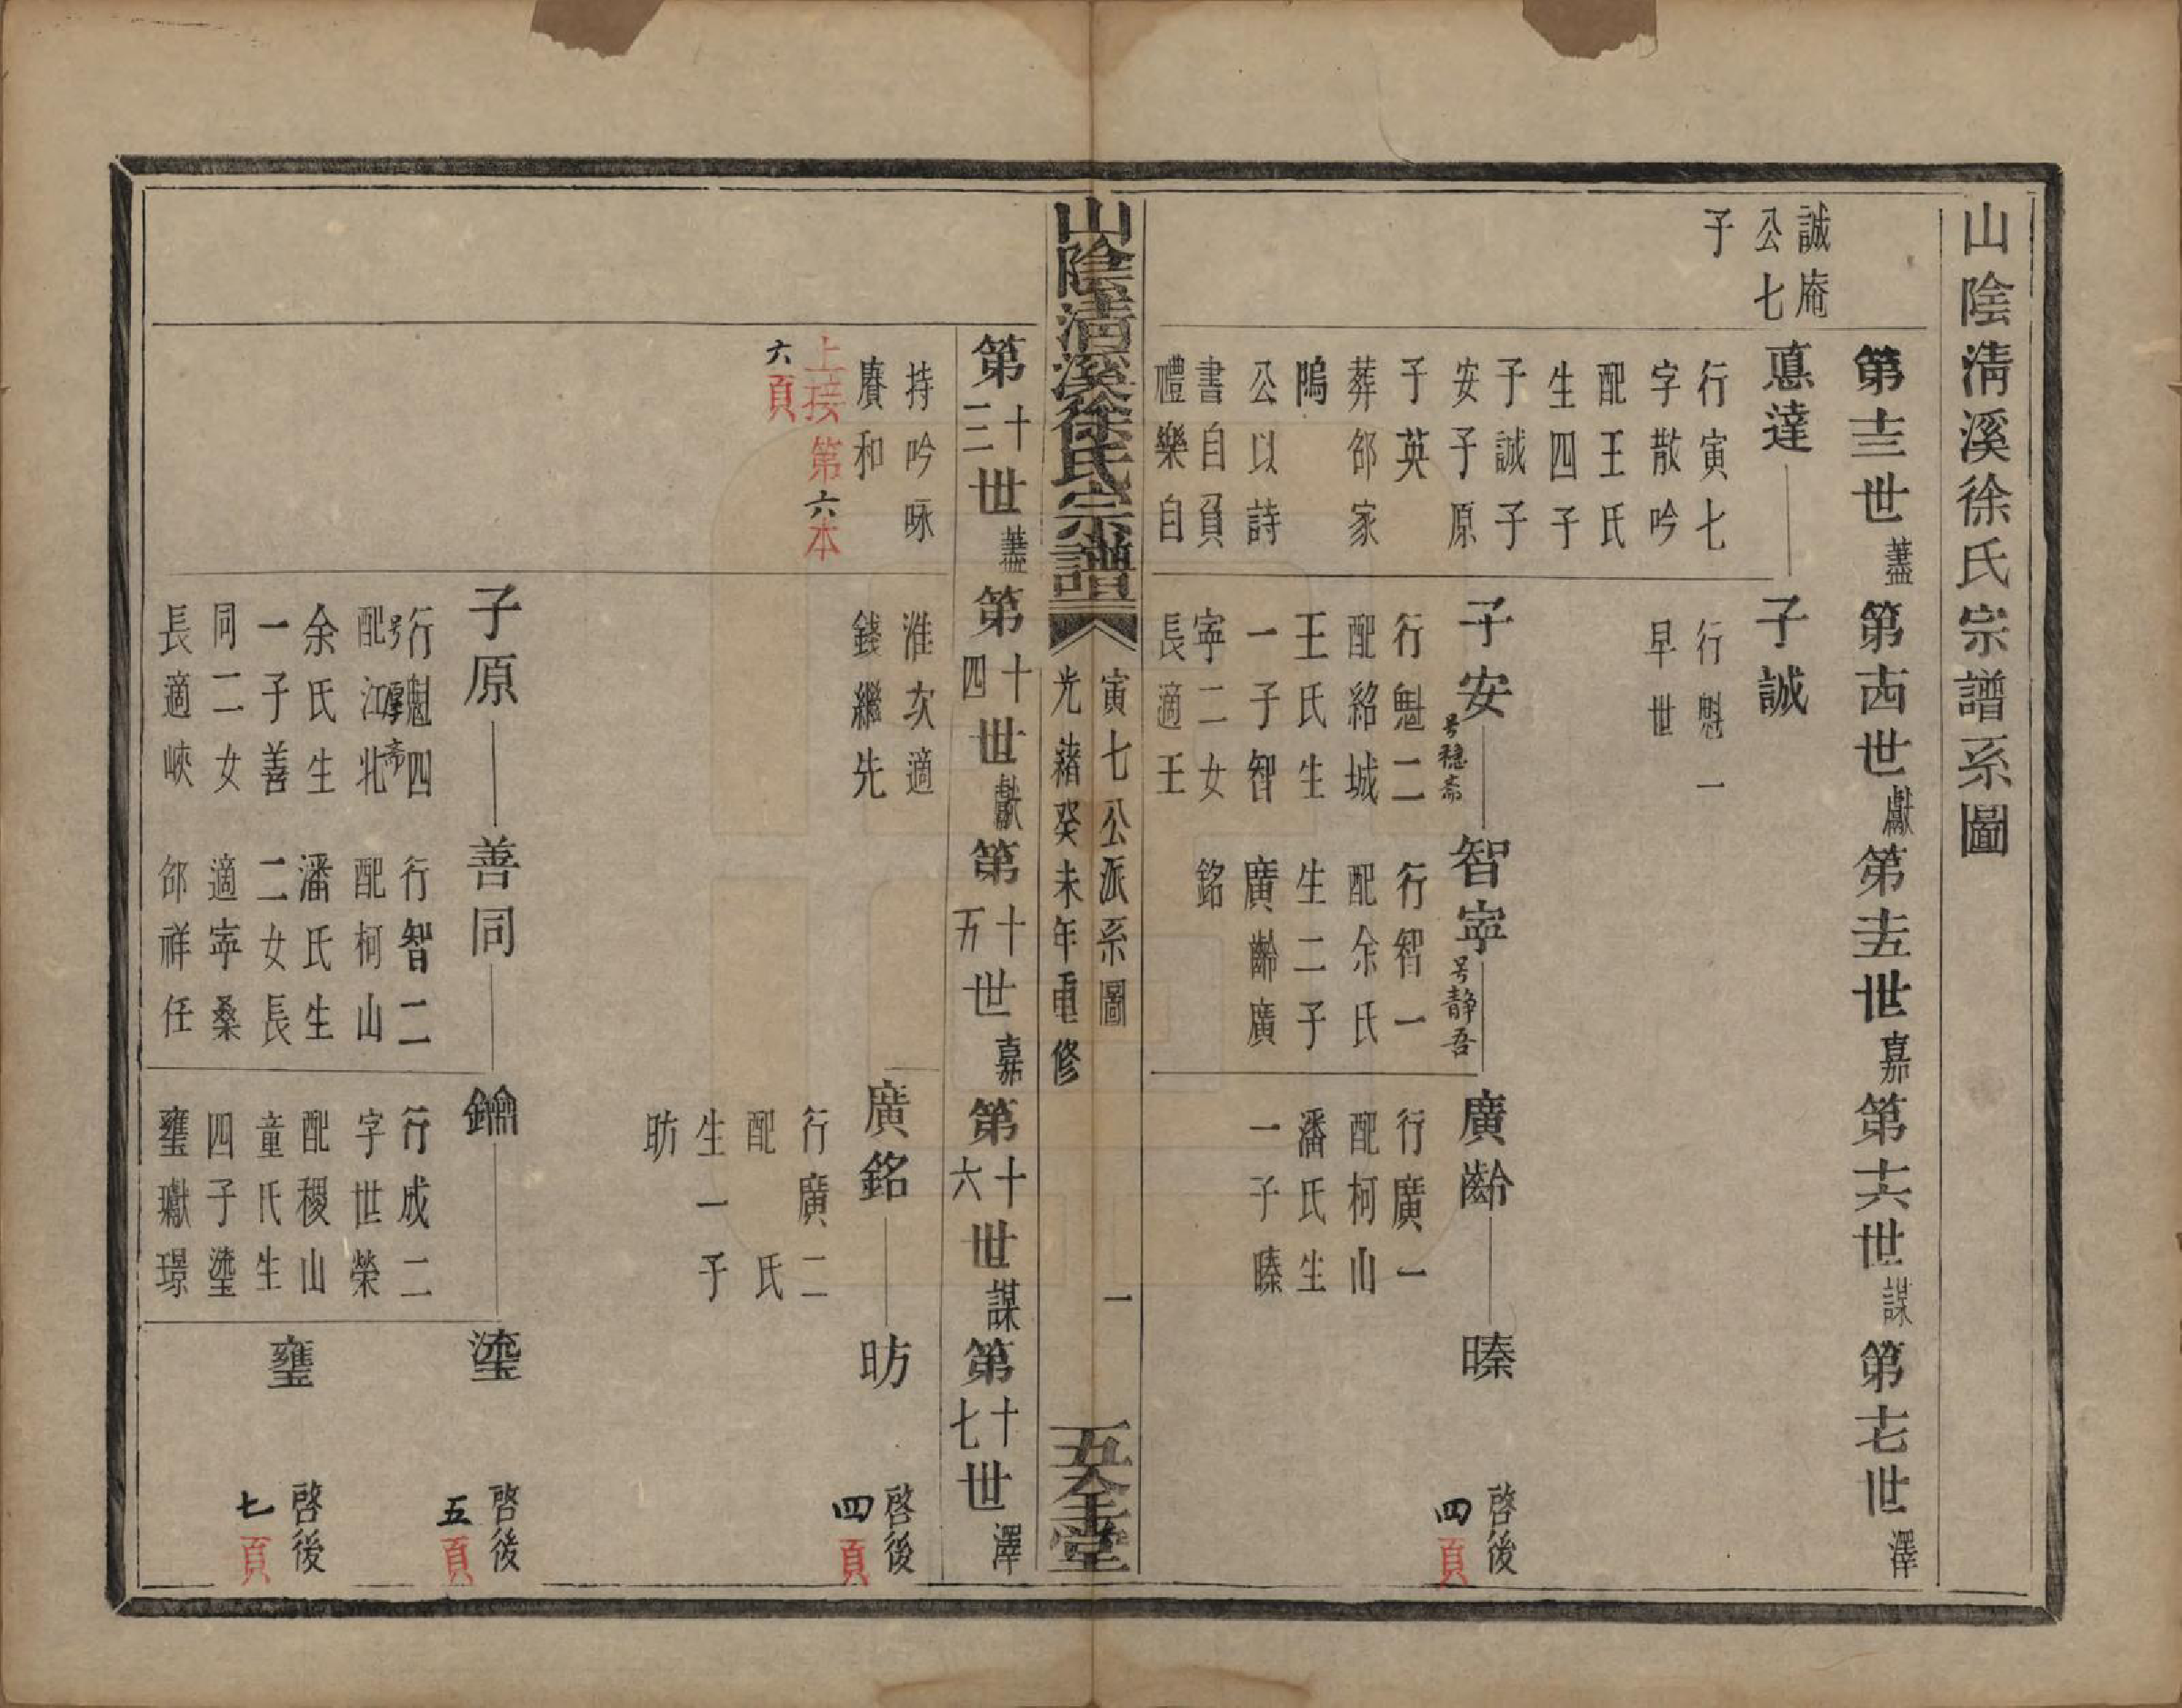 山陰淸溪徐氏宗譜系圖
第十三世藎 第十四世獻 第十五世嘉 第十六世謀 第十七世澤
誠庵
公七
子
惪達
行寅七
字散吟
配王氏
生四子
子誠子
安子原
子英
葬郤家
隖
公以詩
書自負
禮樂自
子誠
行魁一
早世
子安
号穏斋
行魁二
配紹城
王氏生
一子智
寧二女
長適王
智寧
号静吾
行智一
配余氏
生二子
廣齡廣
銘
廣齡
行廣一
配柯山
潘氏生
一子㬜
㬜
啓後
四頁
山陰淸溪徐氏宗譜
寅七公派系圖
光緖癸未年重修
一
第十三世藎 第十四世獻 第十五世嘉 第十六世謀 第十七世澤
持吟咏
賡和
上接第六本
六頁
淮次適
錢繼先
廣銘
行廣二
配 氏
生一子
昉
昉
啓後
四頁
子原
行魁四
号厚斋
配江北
余氏生
一子善
同二女
長適峽
善同
行智二
配柯山
潘氏生
二女長
適寧桑
郤祥任
鑰
行成二
字世榮
配稷山
童氏生
四子瑬
璽瓛璟
瑬
啓後
五頁
璽
啓後
七頁